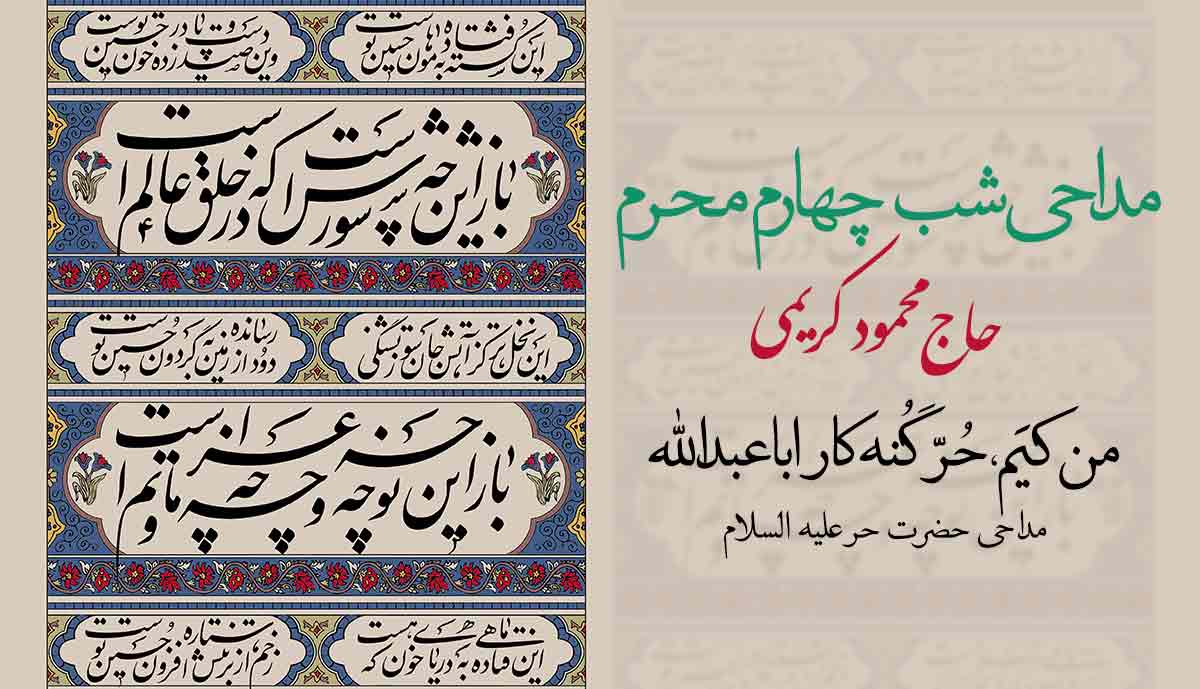 مداحی شب چهارم محرم
حاج محمود کریمی
من کیَم، حُرّ گُنه کار اباعبدالله
مداحی حضرت حر علیه السلام
این کشته فتاده به هامون حسین توست
وین صید دست و پا زده در خون حسین توست
باز این چه شورش است که در خلق عالم است
این نخل تر کز آتش جان سوز تشنگی
دود از زمین رسانده به گردون حسین توست
باز این چه نوحه و چه عزا و چه ماتم است
این ماهی فتاده به دریای خون که هست
زخم از ستاره بر تنش افزون حسین توست